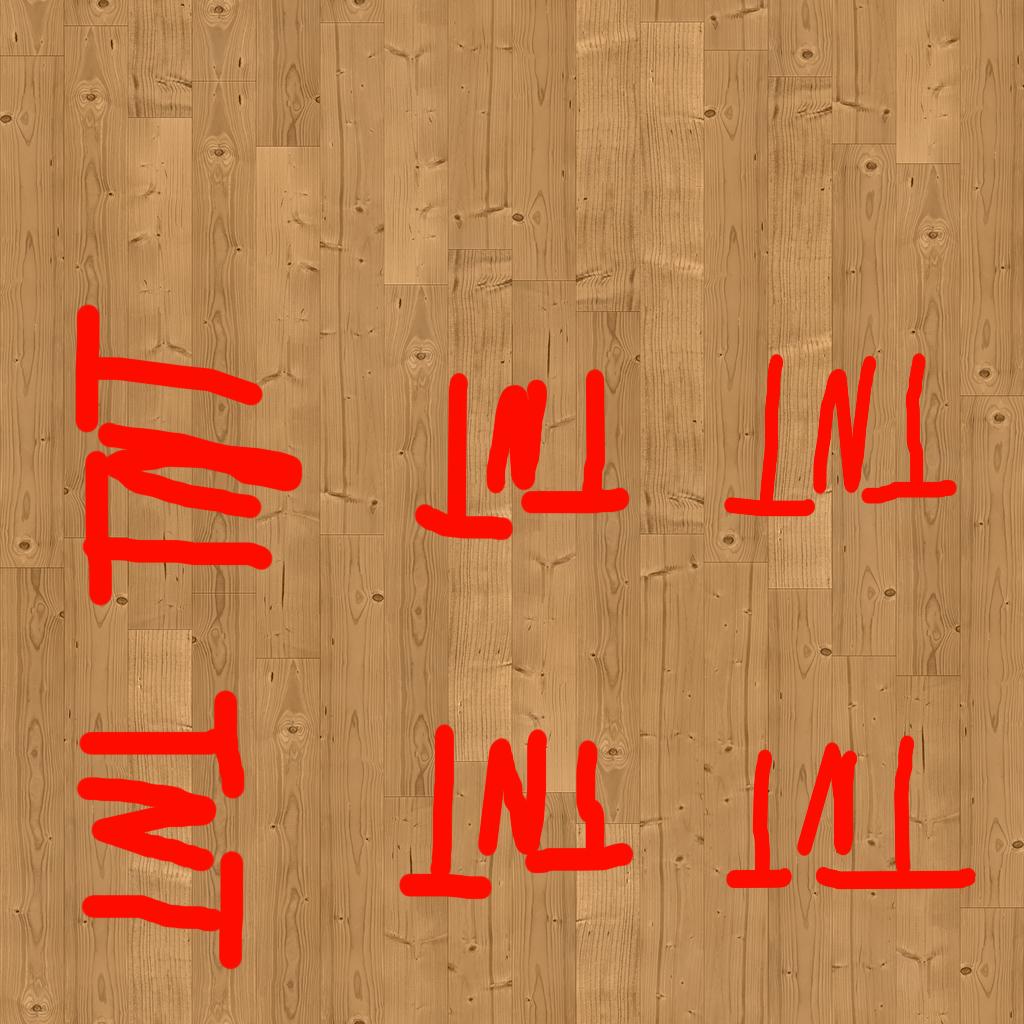 TNT
TNT
TNT
TNT
TNT
TNT